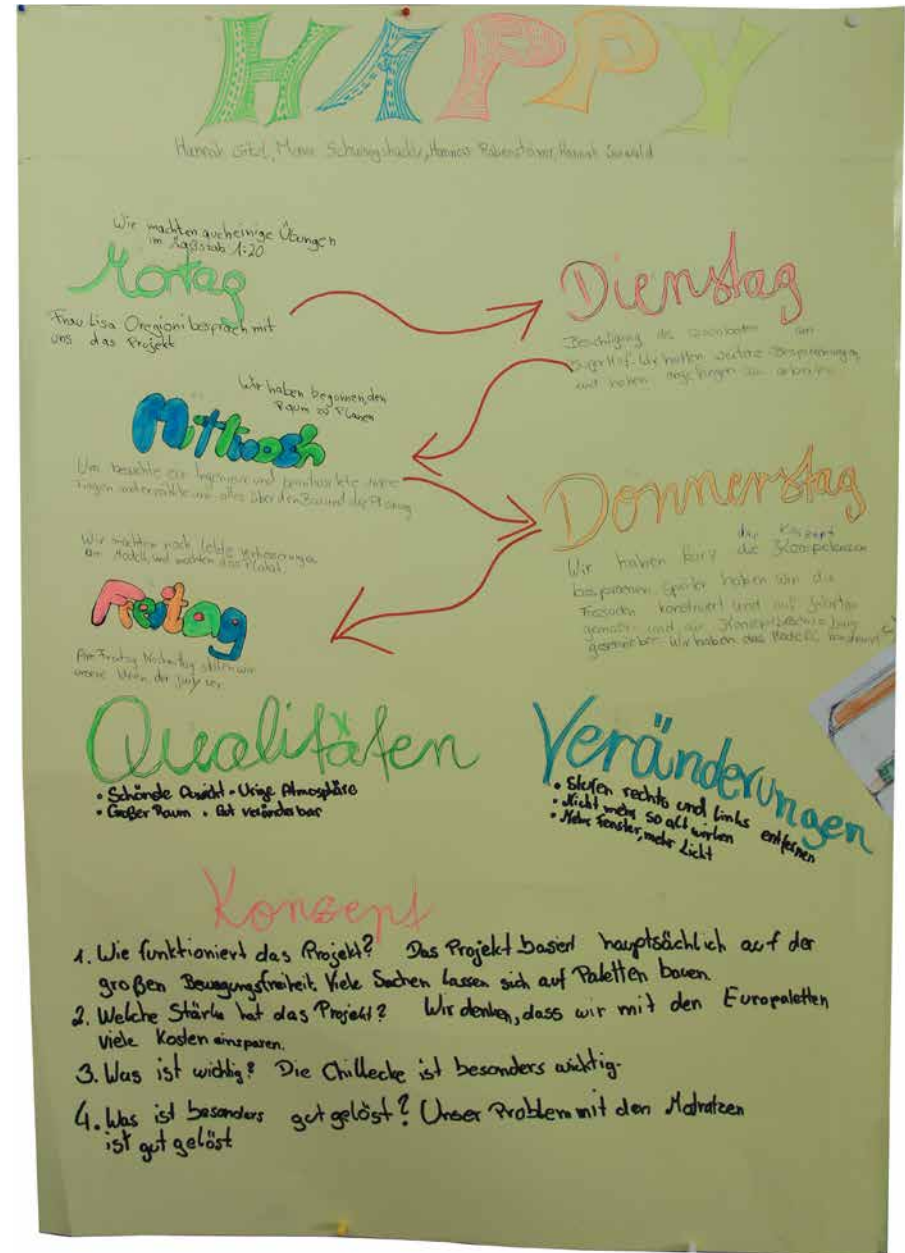 HAPPY
Hannah
Wir machten auch einige Übungen
im Maßstab 1:20
Montag
Frau Lisa Oregioni besprach mit
uns das Projekt
Dienstag
Besichtigung des
Wir hatten weitere Besprechungen
und haben angefangen zu arbeiten
Wir haben begonnen, den
Raum zu Planen
Mittwoch
Uns besuchte ein Ingenieur und beantwortete
Fragen und erzählte uns alles über den Bau und die Planung
Donnerstag
das Konzept
Wir haben kurz die Kompetenzen
besprochen. Später haben wir die
Fassaden konstruiert und auf
gemalt und die Konzeptbeschreibung
geschrieben. Wir haben das Modell
Wir machten noch letzte Verbesserungen
am Modell, und machten das Plakat.
Freitag
Am Freitag Nachmittag stellen wir
unsere Ideen der Jury vor
Qualitäten
• Schönde Aussicht • Urige Atmosphäre
• Großer Raum • Gut veränderbar
Veränderungen
• Stufen rechts und links entfernen
• Nicht mehr so alt wirken
• Mehr Fenster, mehr Licht
Konzept
1. Wie funktioniert das Projekt? Das Projekt basiert hauptsächlich auf der
großen Bewegungsfreiheit. Viele Sachen lassen sich auf Paletten bauen.
2. Welche Stärke hat das Projekt? Wir denken, dass wir mit den Europaletten
viele Kosten einsparen.
3. Was ist wichtig? Die Chillecke ist besonders wichtig.
4. Was ist besonders gut gelöst? Unser Problem mit den Matratzen
ist gut gelöst